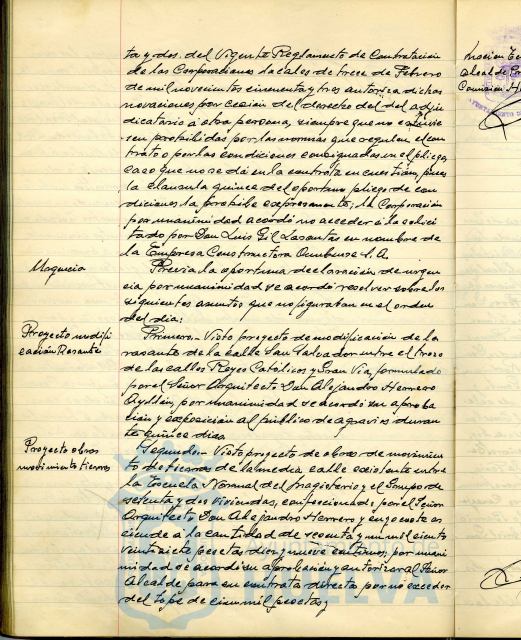 ta y dos. del Vigente Reglamento de Contratación
de las Corporaciones Locales de trece de Febrero
de mil novecientos cincuenta y tres autoriza dichas
novaciones por cesión del derecho del adju
dicatario a otra persona, siempre que no estuvie
sen prohibidas por las normas que regulen el con
trato o por las condiciones consignadas en el pliego,
caso que no se da en la contrata en cuestión, pues
la clausula quince del oportuno pliego de con
diciones la prohibe expresamente; la Corporación
por unanimidad acordó no acceder a lo solici
tado por Don Luis Gil Lasantas en nombre de
la Empresa Constructora Onubense S.A.
Urgencia
Previa la oportuna declaración de urgen
cia por unanimidad se acordó resolver sobre los
siguientes asuntos que no figuraban en el orden
del día:
Proyecto modifi
cación Rasante
Primero.- Visto proyecto de modificación de la
rasante de la calle San Salvador entre el trozo
de las calles Reyes Católicos y Gran Via, formulado
por el Señor Arquitecto Don Alejandro Herrero
Ayllón, por unanimidad se acordó su aproba
ción y exposición al público de agravios duran
te quince dias.
Proyecto obras
movimiento tierras
Segundo.- Visto proyecto de obras de movimien
to de tierras de la media calle existente entre
la Escuela Normal del Magisterio y el Grupo de
setenta y dos viviendas, confeccionado por el Señor
Arquitecto Don Alejandro Herrero y cuyo coste as
ciende a la cantidad de sesenta y un mil ciento
veintisiete pesetas diez y nueve centimos, por unani
midad se acordó su aprobación y autorizar al Señor
Alcalde para su contrata directa por no exceder
del tope de cien mil pesetas,
Alcalde
HUELVA